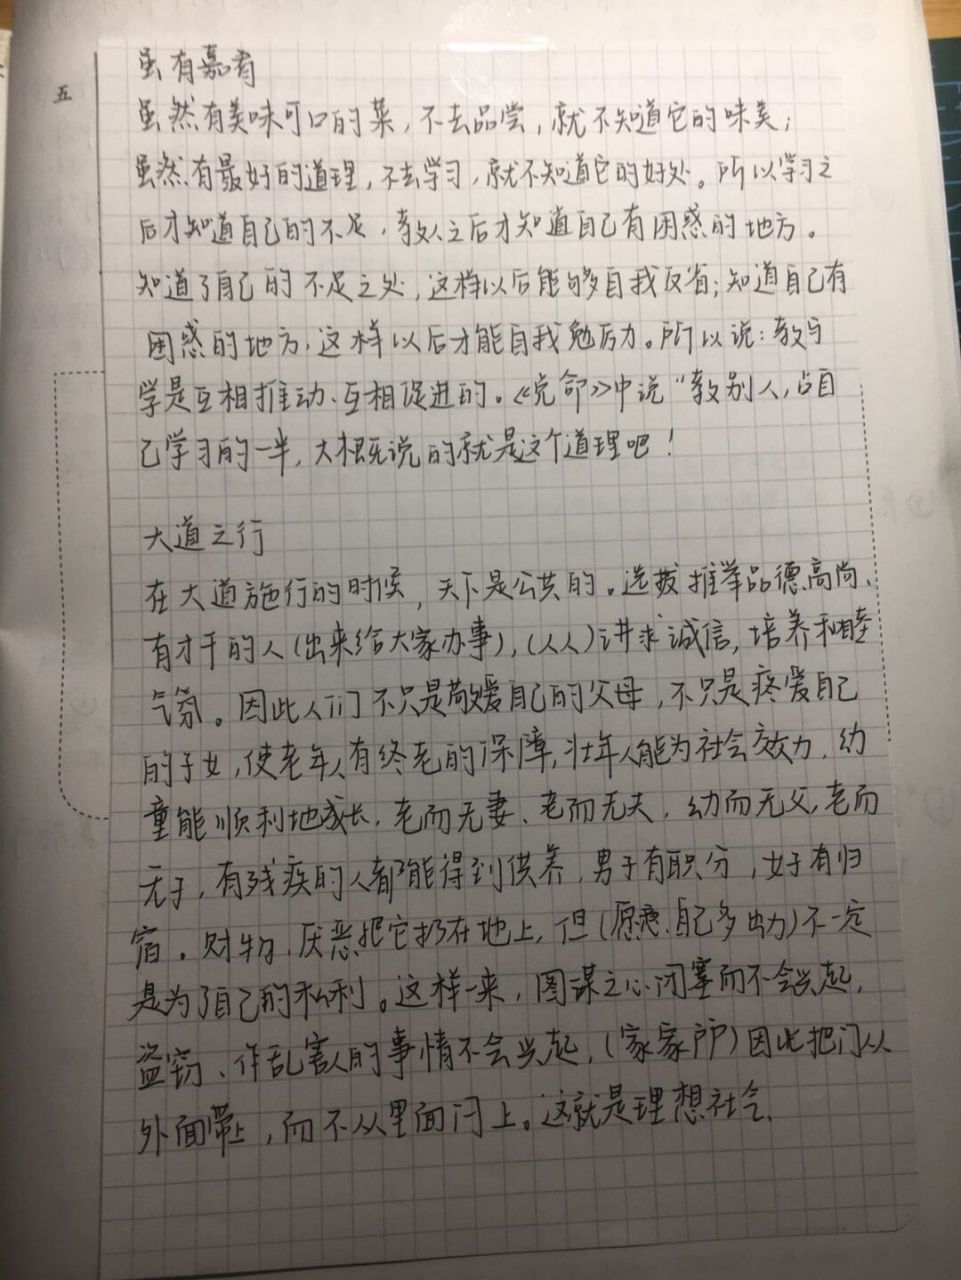 五
虽有嘉肴
虽然有美味可口的菜,不去品尝,就不知道它的味美;
虽然有最好的道理,不去学习,就不知道它的好处。所以学习之
后才知道自己的不足,教人之后才知道自己有困惑的地方。
知道了自己的不足之处,这样以后能够自我反省;知道自己有
困惑的地方,这样以后才能自我勉励。所以说:教与
学是互相推动、互相促进的。《兑命》中说“教别人,占自
己学习的一半,大概说的就是这个道理吧!
大道之行
在大道施行的时候,天下是公共的。选拔推举品德高尚、
有才干的人(出来给大家办事),(人人)讲求诚信,培养和睦
气氛。因此人们不只是敬爱自己的父母,不只是疼爱自己
的子女,使老年人有终老的保障,壮年人能为社会效力,幼
童能顺利地成长,老而无妻、老而无夫,幼而无父,老而
无子,有残疾的人都能得到供养,男子有职分,女子有归
宿。财物,厌恶把它扔在地上,但(愿意自己多出力)不一定
是为了自己的私利。这样一来,图谋之心闭塞而不会兴起,
盗窃、作乱害人的事情不会兴起,(家家户户)因此把门从
外面带上,而不从里面闩上。这就是理想社会.